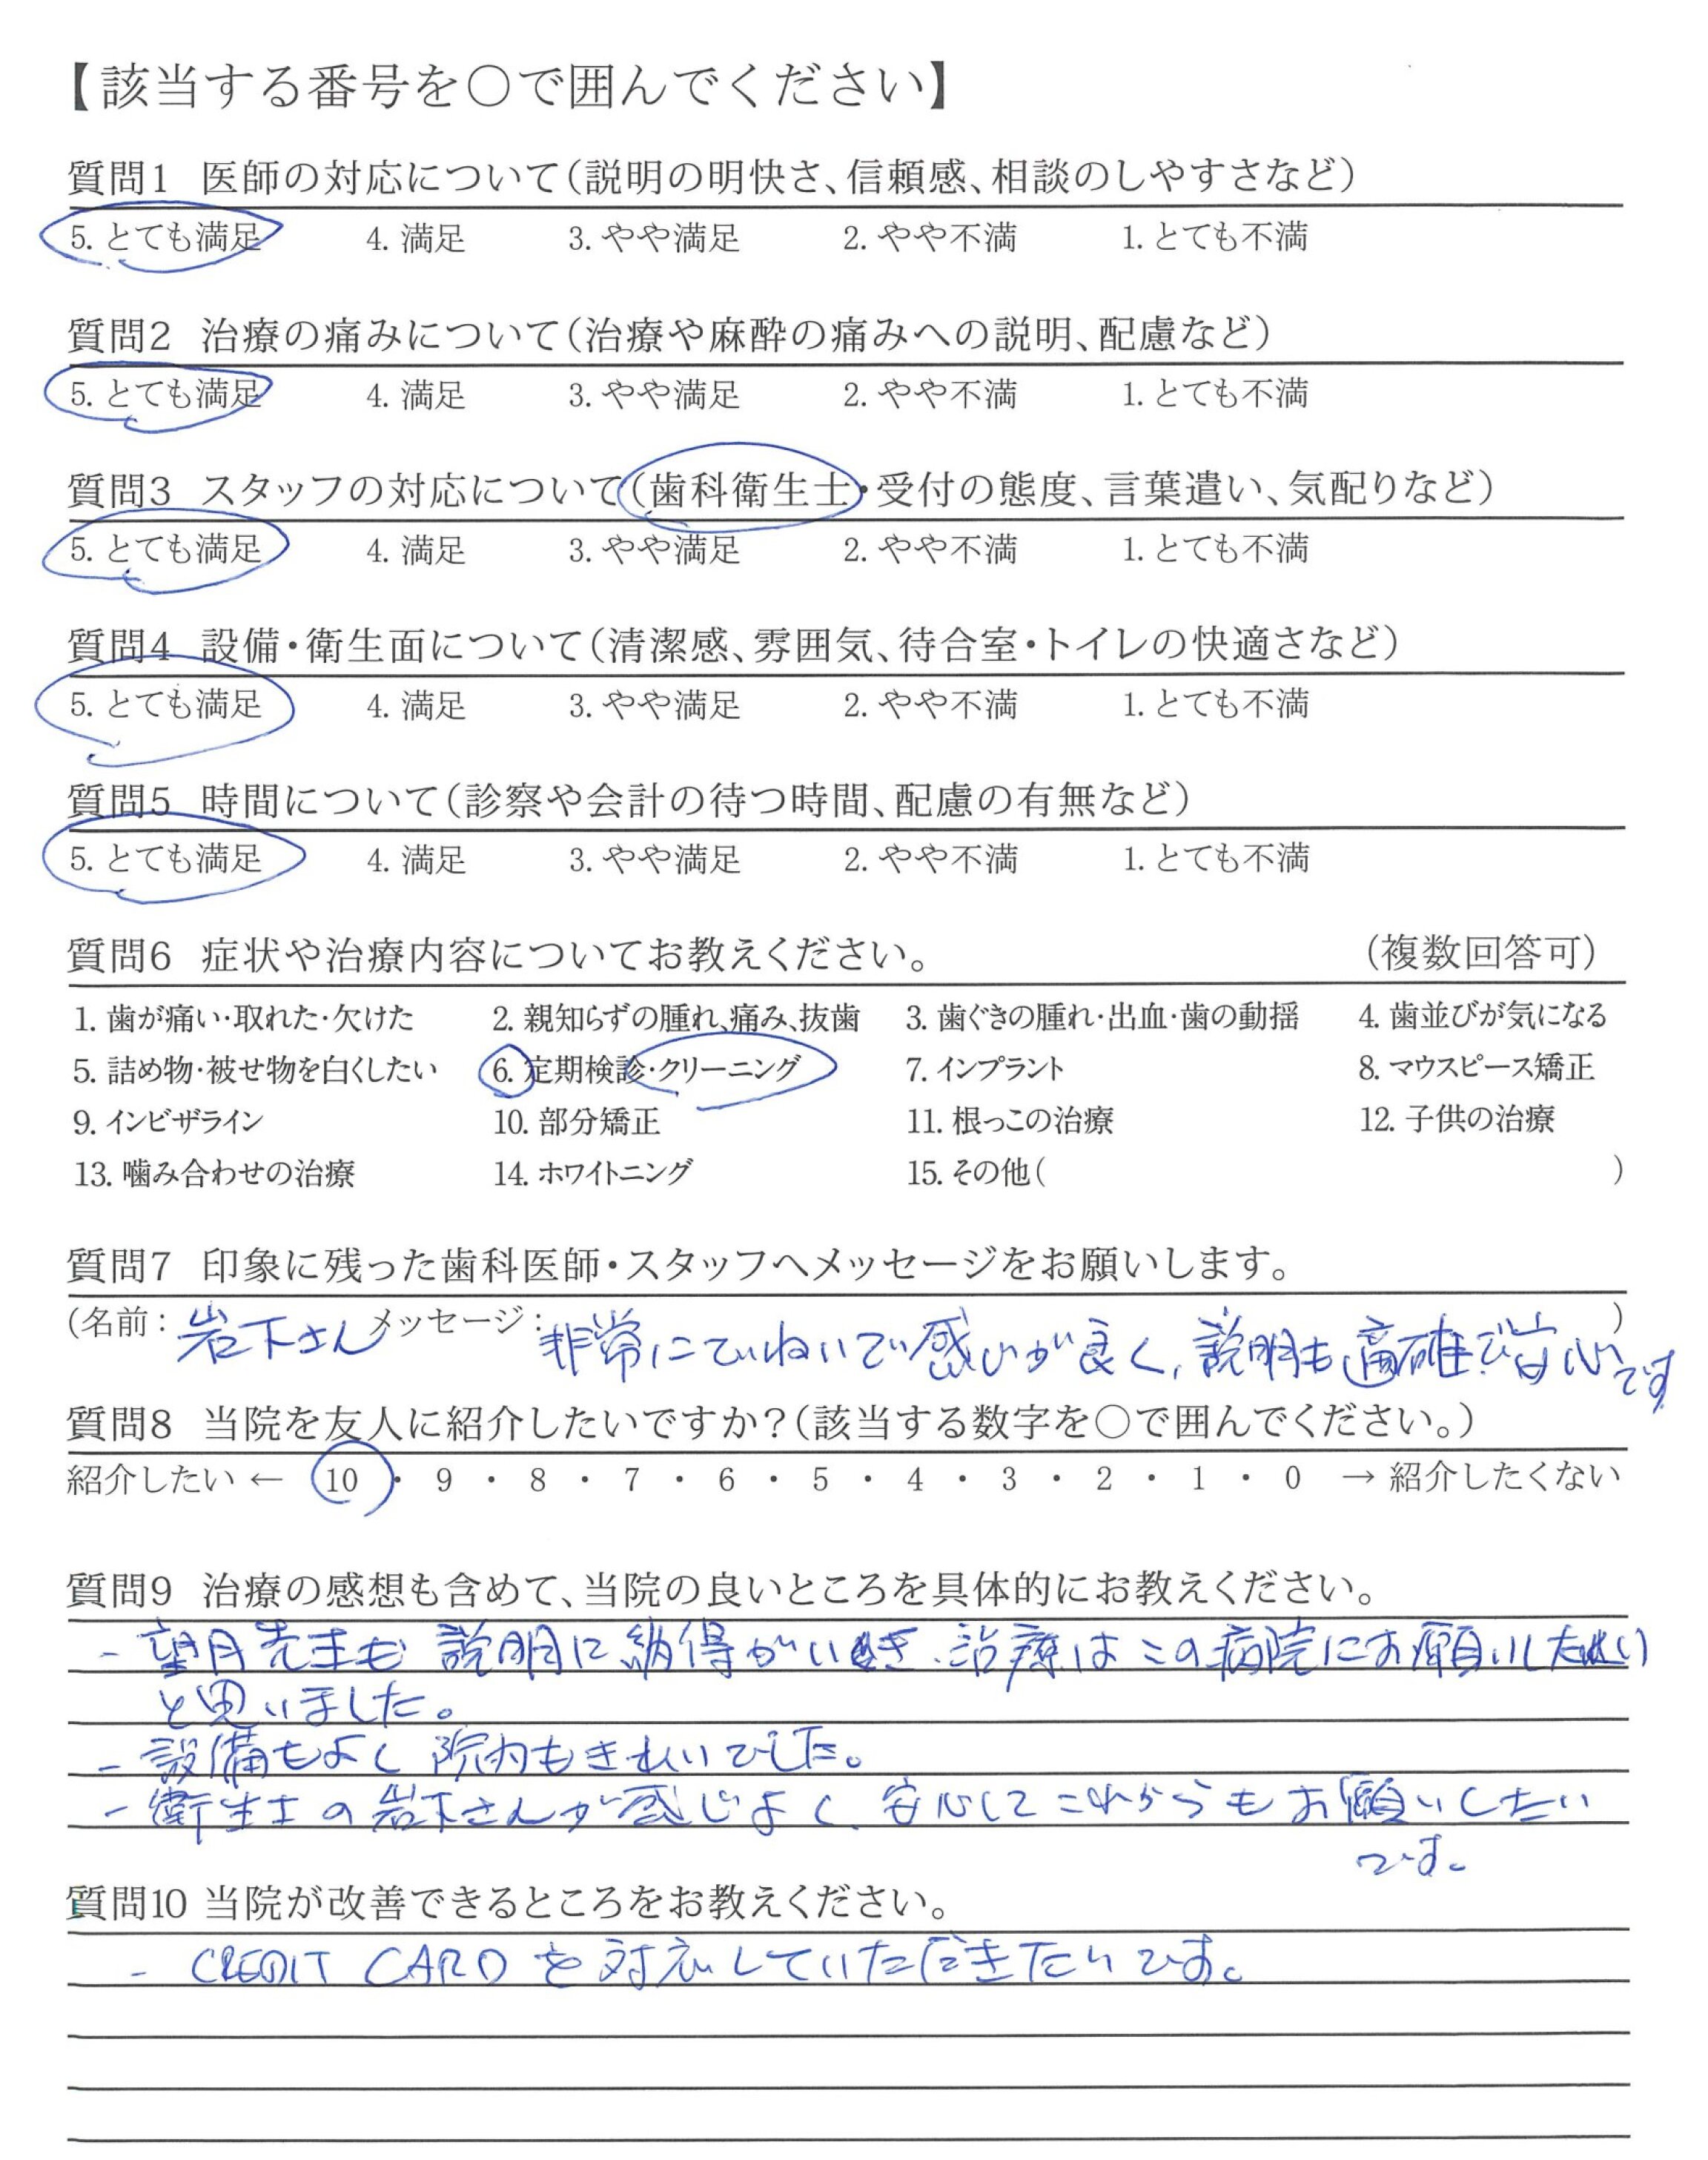 【該当する番号を○で囲んでください】
質問1 医師の対応について(説明の明快さ、信頼感、相談のしやすさなど)
5. とても満足 4. 満足 3. やや満足 2. やや不満 1. とても不満
質問2 治療の痛みについて(治療や麻酔の痛みへの説明、配慮など)
5. とても満足 4. 満足 3. やや満足 2. やや不満 1. とても不満
質問3 スタッフの対応について(歯科衛生士・受付の態度、言葉遣い、気配りなど)
5. とても満足 4. 満足 3. やや満足 2. やや不満 1. とても不満
質問4 設備・衛生面について(清潔感、雰囲気、待合室・トイレの快適さなど)
5. とても満足 4. 満足 3. やや満足 2. やや不満 1. とても不満
質問5 時間について(診察や会計の待つ時間、配慮の有無など)
5. とても満足 4. 満足 3. やや満足 2. やや不満 1. とても不満
質問6 症状や治療内容についてお教えください。 (複数回答可)
1. 歯が痛い・取れた・欠けた 2. 親知らずの腫れ、痛み、抜歯 3. 歯ぐきの腫れ・出血・歯の動揺 4. 歯並びが気になる
5. 詰め物・被せ物を白くしたい 6. 定期検診・クリーニング 7. インプラント 8. マウスピース矯正
9. インビザライン 10. 部分矯正 11. 根っこの治療 12. 子供の治療
13. 噛み合わせの治療 14. ホワイトニング 15. その他( )
質問7 印象に残った歯科医師・スタッフへメッセージをお願いします。
(名前: 岩下さん メッセージ: 非常にていねいで感じが良く、説明も適確で安心です )
質問8 当院を友人に紹介したいですか?(該当する数字を○で囲んでください。)
紹介したい ← 10 ・ 9 ・ 8 ・ 7 ・ 6 ・ 5 ・ 4 ・ 3 ・ 2 ・ 1 ・ 0 → 紹介したくない
質問9 治療の感想も含めて、当院の良いところを具体的にお教えください。
- 望月先生も 説明に納得がいき、治療はこの病院にお願いしたい
と思いました。
- 設備もよく 院内もきれいでした。
- 衛生士の岩下さんが感じよく、安心してこれからもお願いしたい
です。
質問10 当院が改善できるところをお教えください。
- CREDIT CARD を対応していただきたいです。